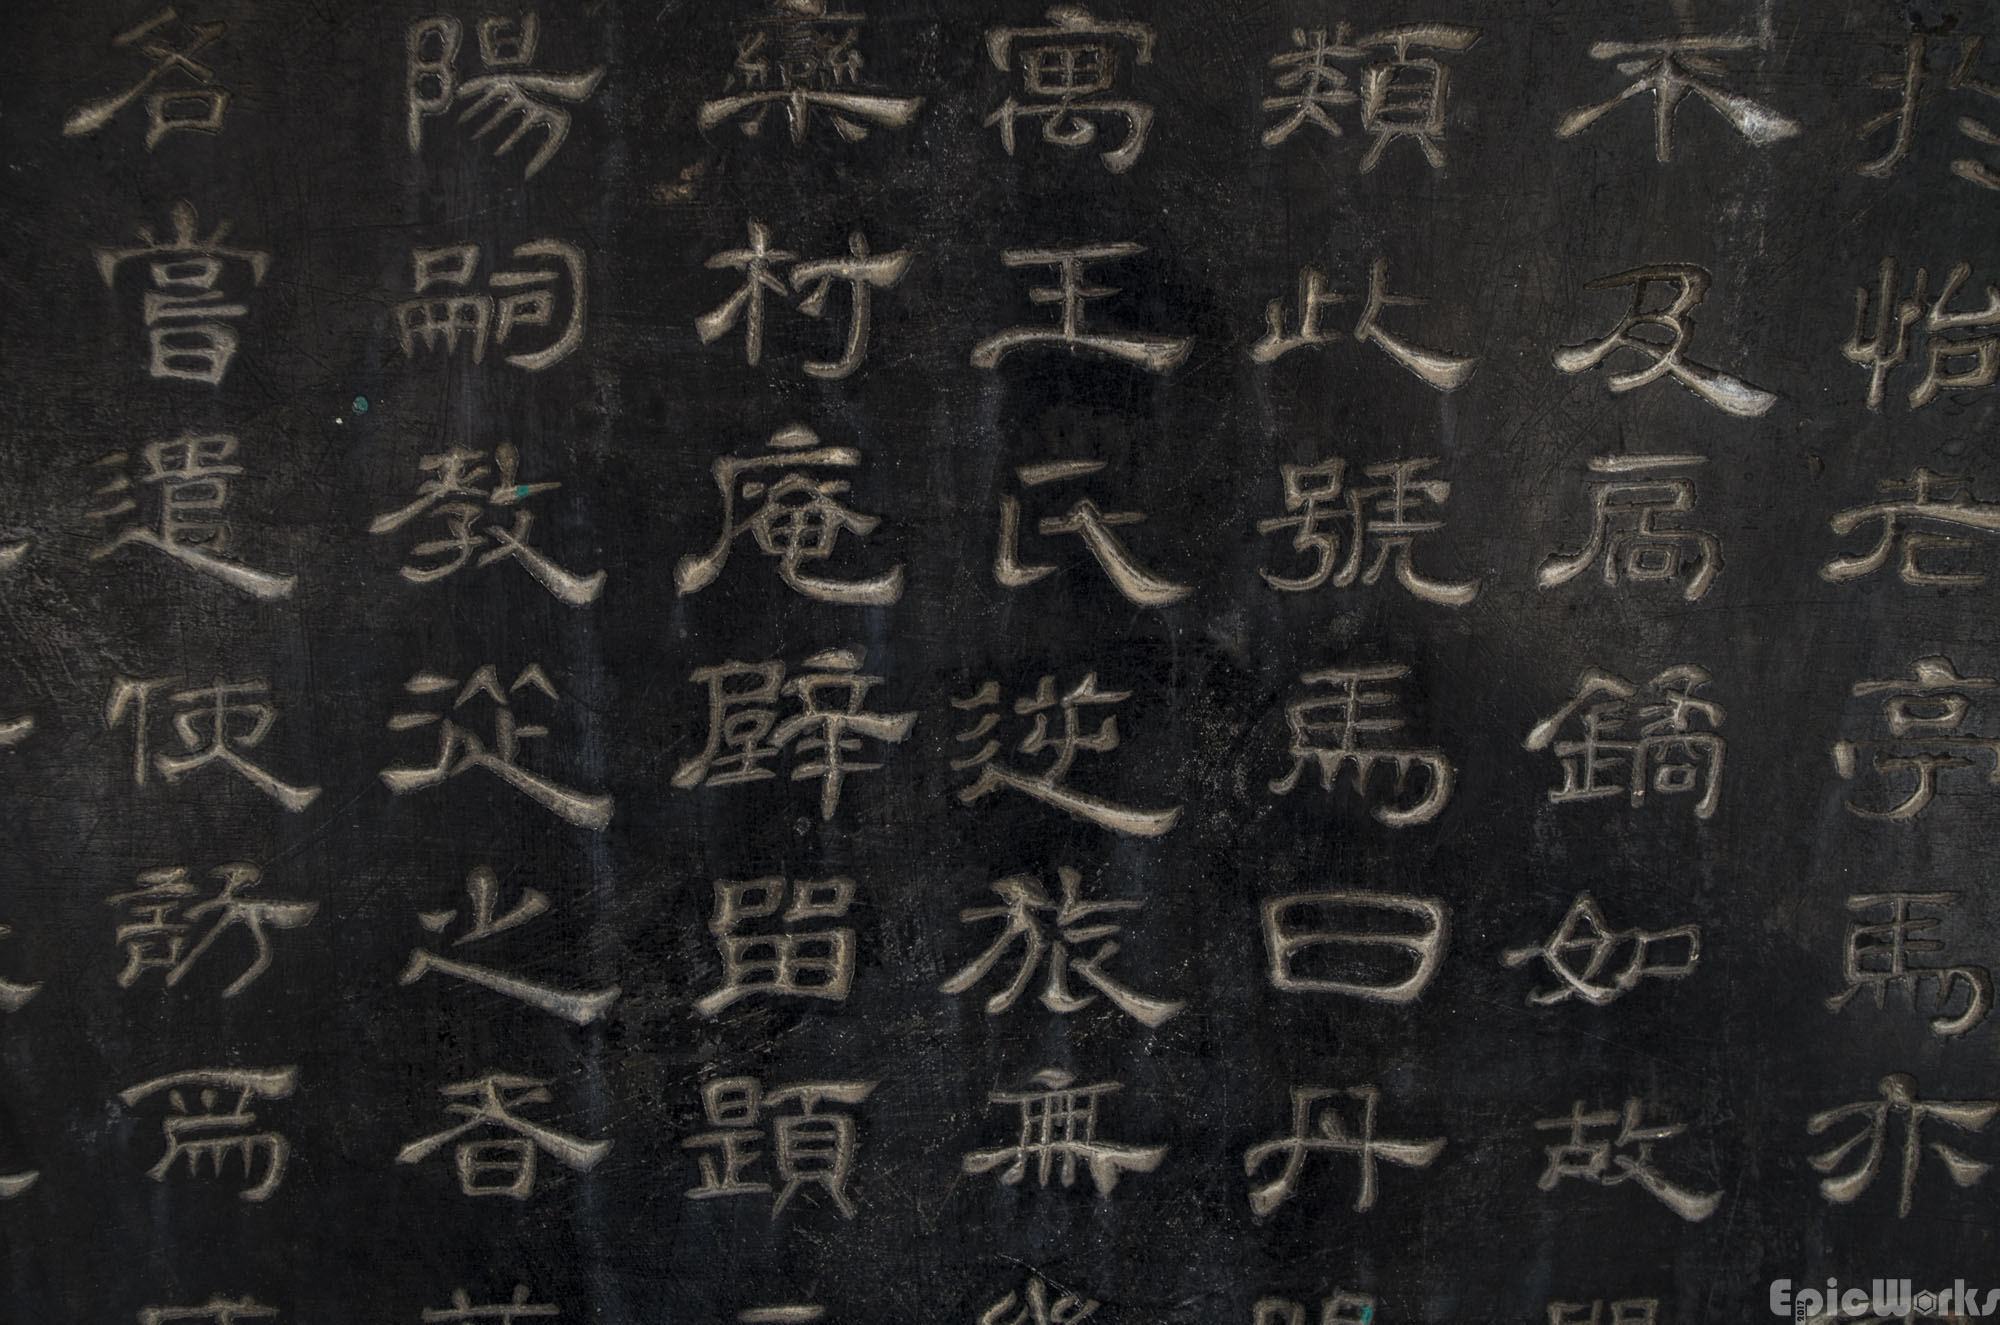 於怡老亭馬亦
不及扃鐍如故
類此號馬曰丹
寓王氏逆旅無幾
欒村庵壁留題
陽嗣教從之者
名嘗遣使訪焉
EpicWorks
2017